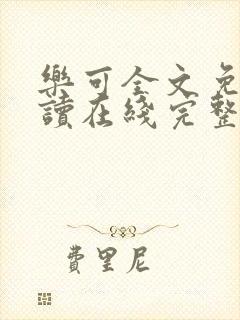 樂可全文免
讀在綫完整
費里尼